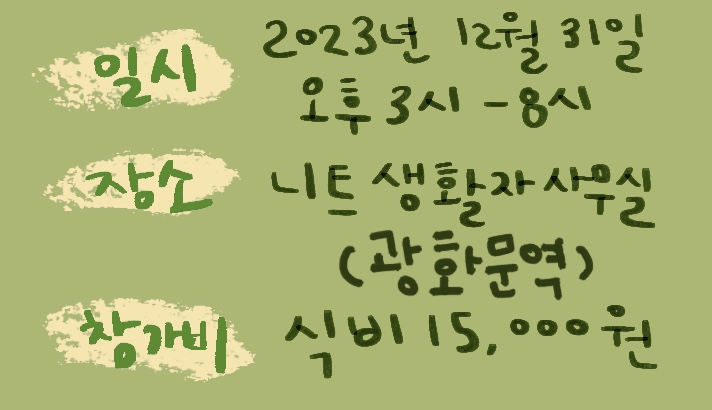 일시 2023년 12월 31일
오후 3시 - 8시
장소 니트 생활자 사무실
(광화문역)
참가비 식비 15,000원